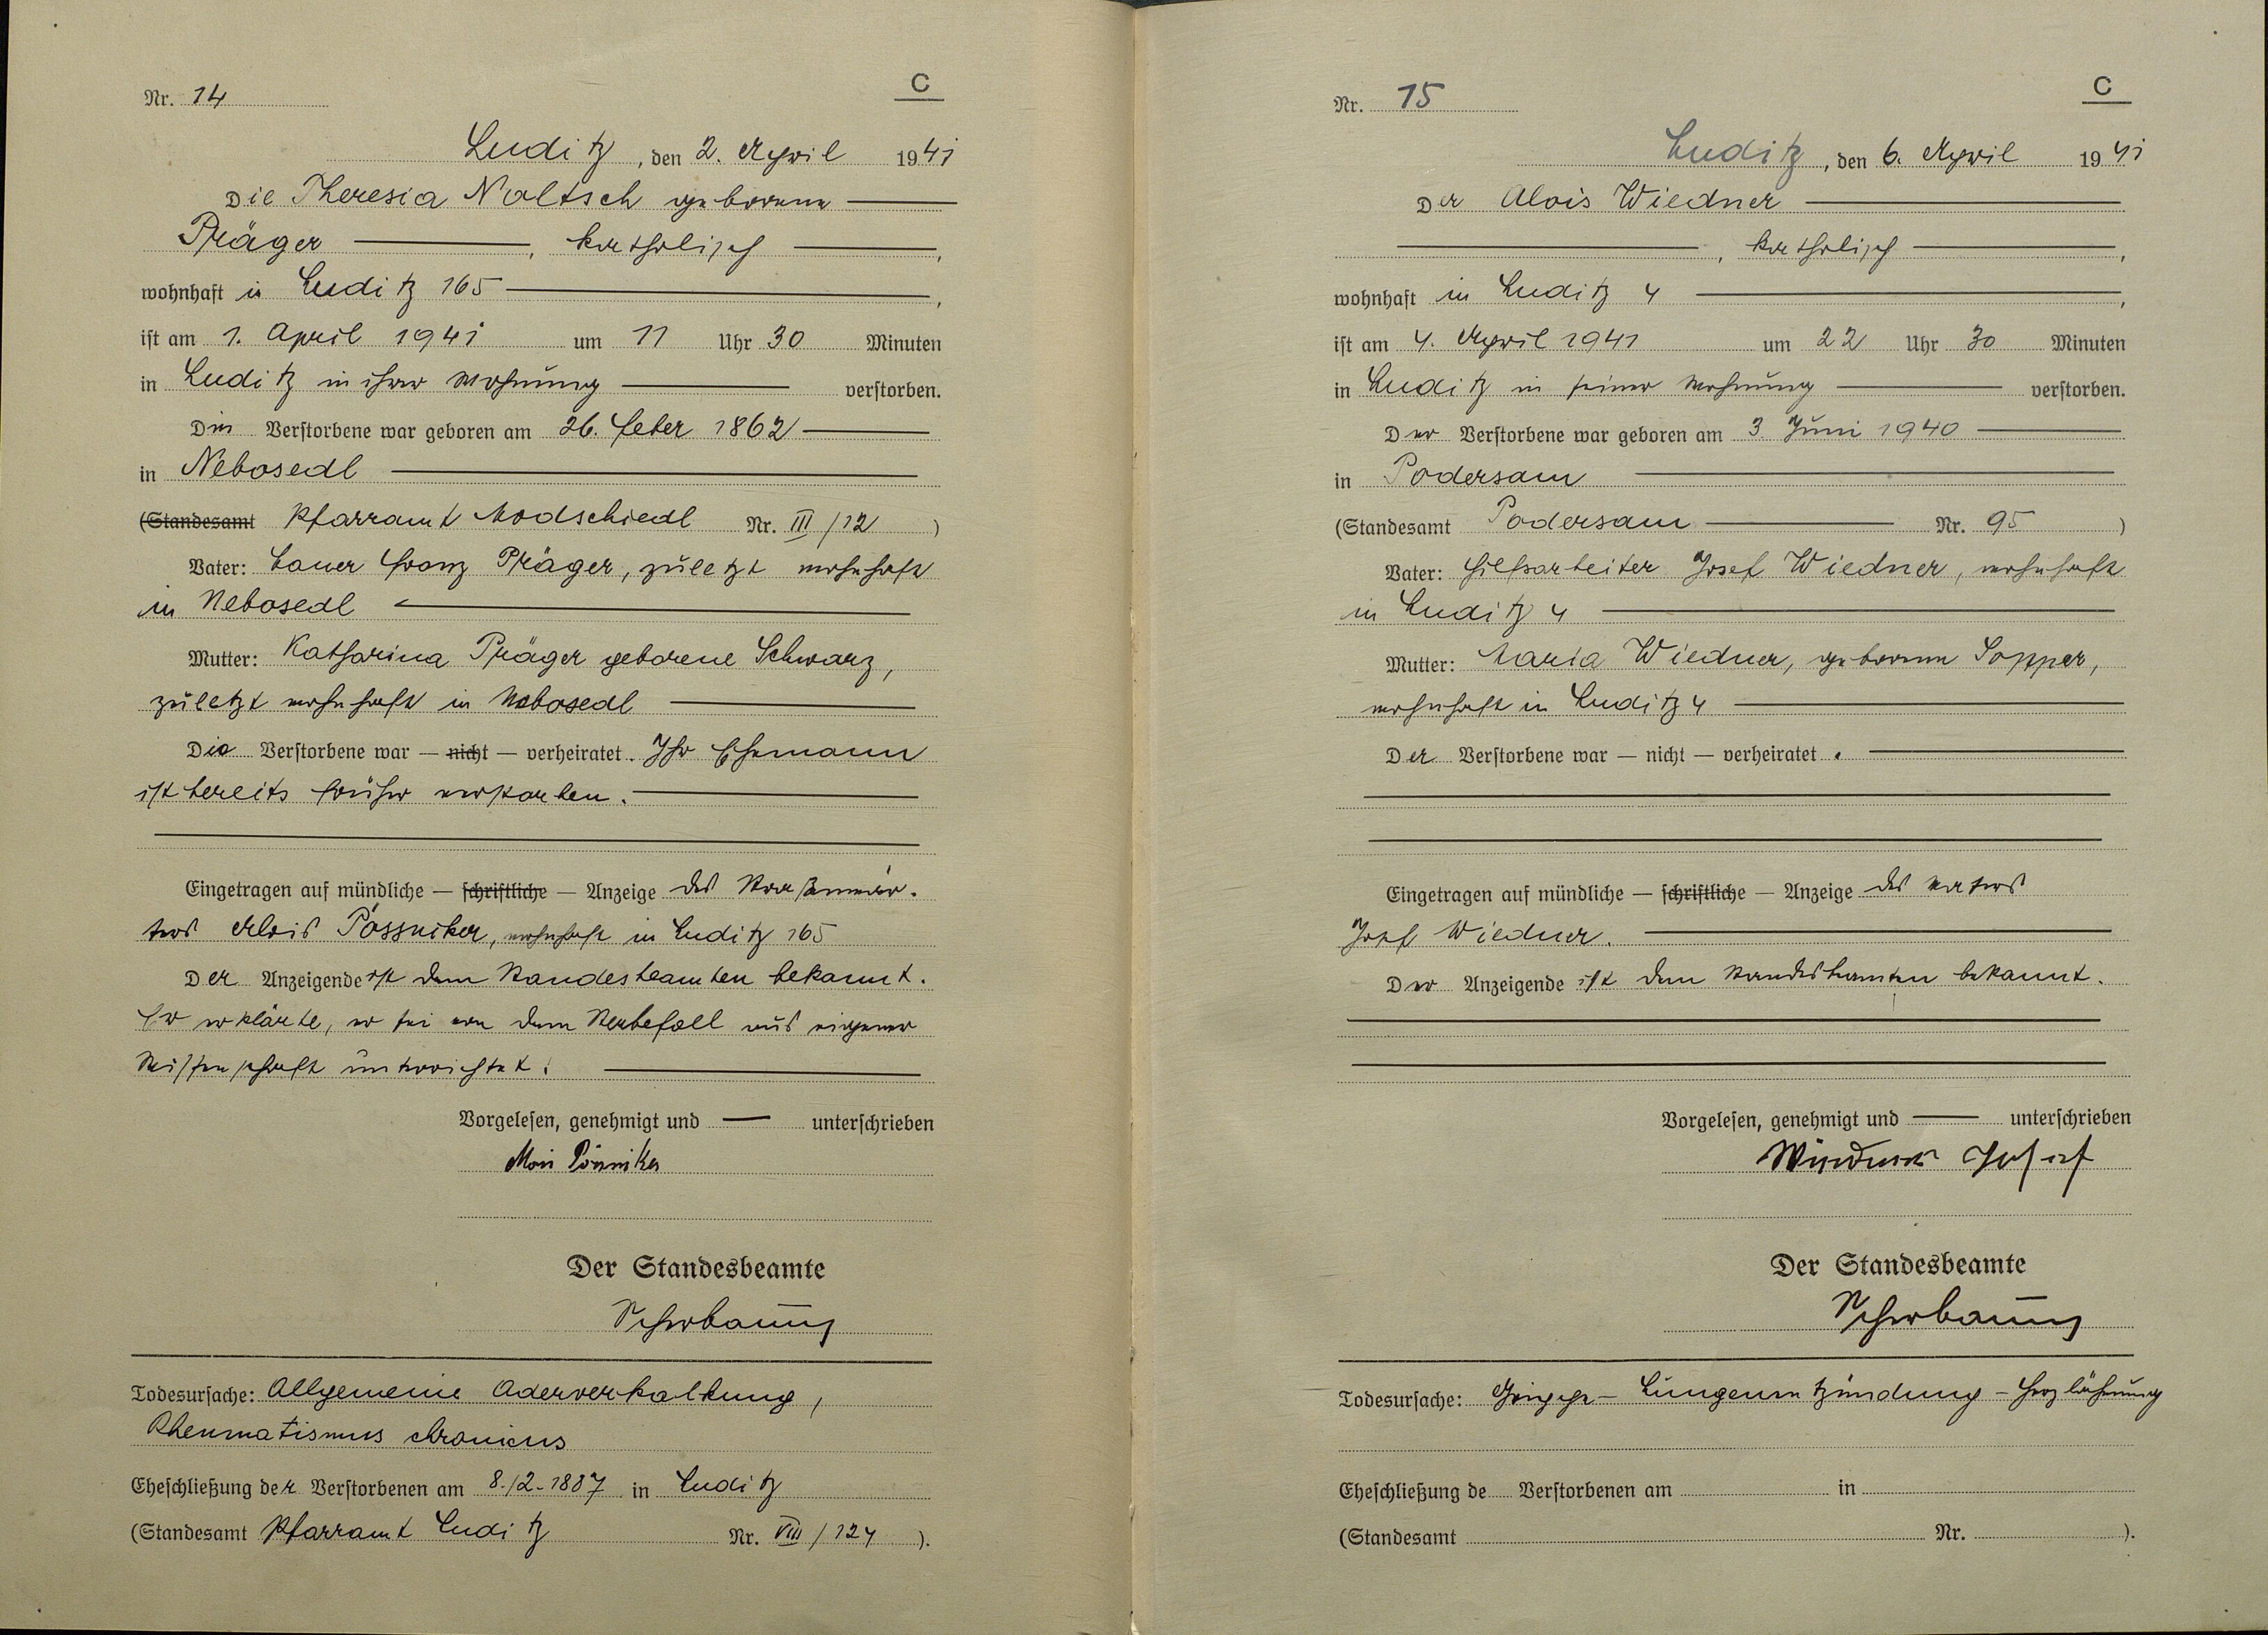 Nr. 14
C
Luditz, den 2. April 1941
Die Theresia Noltsch geborene
Präger, katholisch,
wohnhaft in Luditz 165,
ist am 1. April 1941 um 11 Uhr 30 Minuten
in Luditz in ihrer Wohnung verstorben.
Die Verstorbene war geboren am 26. Feber 1862
in Nebosedl
(Standesamt Pfarramt Modschiedl Nr. III/12)
Vater: Bauer Franz Präger, zuletzt wohnhaft
in Nebosedl
Mutter: Katharina Präger geborene Schwarz,
zuletzt wohnhaft in Nebosedl
Die Verstorbene war — nicht — verheiratet. Ihr Ehemann
ist bereits früher verstorben.
Eingetragen auf mündliche — schriftliche — Anzeige des Straßenwär-
ters Alois Pössniker, wohnhaft in Luditz 165
Der Anzeigende ist dem Standesbeamten bekannt.
Er erklärte, er sei von dem Sterbefall aus eigener
Wissenschaft unterrichtet.
Vorgelesen, genehmigt und unterschrieben
Alois Pössniker
Der Standesbeamte
Todesursache: Allgemeine Aderverkalkung,
Rheumatismus chronicus
Eheschließung der Verstorbenen am 8./2.1887 in Luditz
(Standesamt Pfarramt Luditz Nr. VIII/124).
Nr. 15
C
Luditz, den 6. April 1941
Der Alois Wiedner
, katholisch,
wohnhaft in Luditz 4,
ist am 4. April 1941 um 22 Uhr 30 Minuten
in Luditz in seiner Wohnung verstorben.
Der Verstorbene war geboren am 3. Juni 1940
in Podersam
(Standesamt Podersam Nr. 95)
Vater: Hilfsarbeiter Josef Wiedner, wohnhaft
in Luditz 4
Mutter: Maria Wiedner, geborene Sopper,
wohnhaft in Luditz 4
Der Verstorbene war — nicht — verheiratet.
Eingetragen auf mündliche — schriftliche — Anzeige des Vaters
Josef Wiedner.
Der Anzeigende ist dem Standesbeamten bekannt.
Vorgelesen, genehmigt und unterschrieben
Wiedner Josef
Der Standesbeamte
Todesursache: Grippe - Lungenentzündung - Herzlähmung
Eheschließung de Verstorbenen am in
(Standesamt Nr. ).